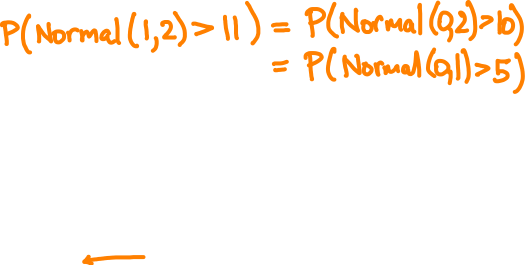 P(Normal(1,2)>11) = P(Normal(0,2)>10)
= P(Normal(0,1)>5)